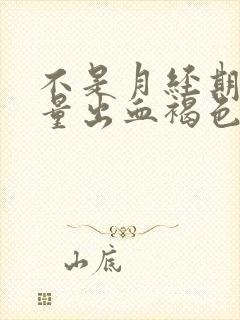 不是月经期
量出血褐色
山底